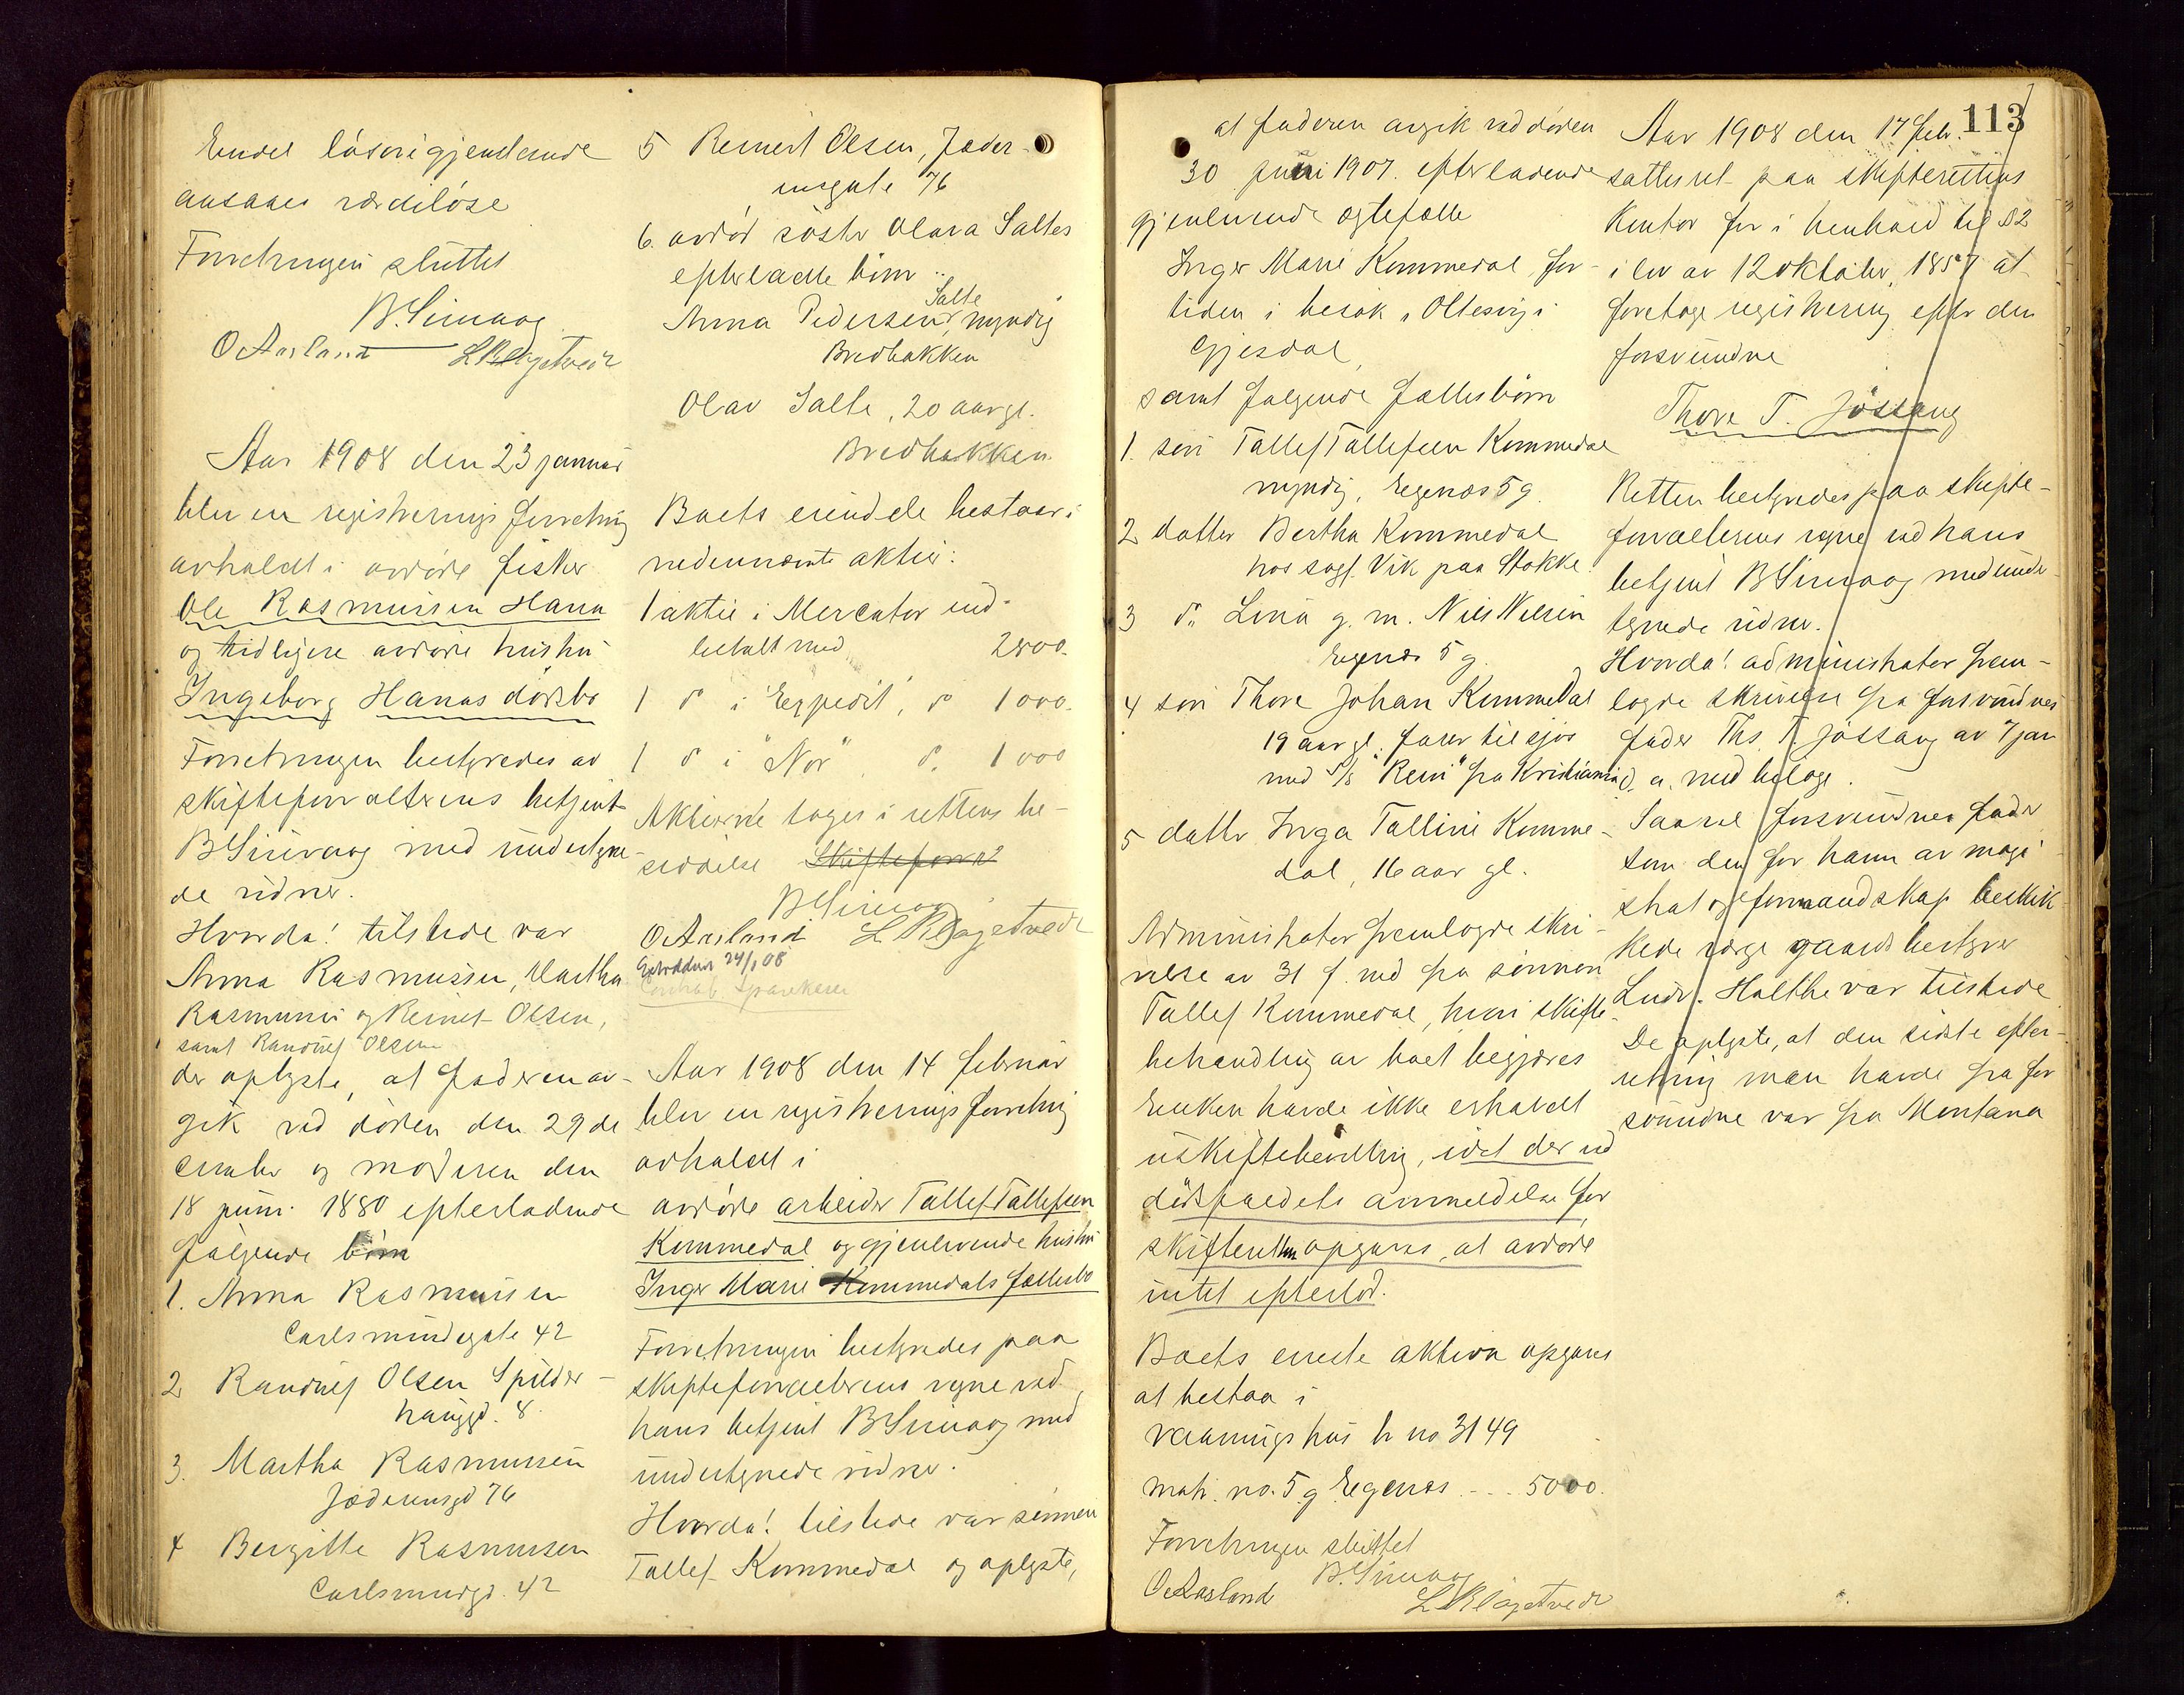 Endel løsøre igjenlevende
ansaaes værdiløse
Forretningen sluttet
B. Simaog
O Aasland L K Bøgetvedt
Aar 1908 den 23 januar
blev en registrerings forretning
avholdt i avdøde fisker
Ole Rasmussen Hana
og tidligere avdøde hustru
Ingeborg Hanas dødsbo
Forretningen bestyredes av
skifteforvalterens betjent
B Simaog med undertegne-
de vidner.
Hvorda! tilstede var
Anna Rasmussen, Martha
Rasmussen og Reinert Olsen,
samt Randulf Olsen
der oplyste, at faderen av-
gik ved døden den 29 de
cember og moderen den
18 juni 1880 efterladende
følgende børn
1. Anna Rasmussen
Carlsmindegate 42
2 Randulf Olsen Spilder-
haugd. 8.
3. Martha Rasmussen
Jæderensgd 76
4 Bergitte Rasmussen
Carlsmindgd. 42
5 Reinert Olsen, Jæder-
ensgate 76
6. avdød søster Olava Saltes
efterladte børn:
Salte
Anna Pedersen, myndig
Bredbakken
Olav Salte, 20 aar gl.
Bredbakken
Boets eiendele bestaar i
nedennævnte aktier:
1 aktie i Mercator ind-
betalt med 2800.
1 do i "Expedit", do 1000.
1 do i "Nor" do. 1000
Aktierne tages i rettens be-
siddelse Skifteforv
B Simaog
O Aasland L K Bøgetvedt
24/1 08
Sparekasse
Aar 1908 den 14 februar
blev en registrerings forretning
avholdt i
avdøde arbeider Tallef Tallefsen
Kommedal og gjenlevende hustru
Inger Marie Kommedals fællesbo
Forretningen bestyredes paa
skifteforvalterens vegne ved
hans betjent B Simaog med
undertegnede vidner.
Hvorda! tilstede var sønnen
Tallef Kommedal og oplyste,
113
at faderen avgik ved døden
30 juni 1907. efterladende
gjenlevende ægtefælle
Inger Marie Kommedal for-
tiden i besøk i Oltesvig i
Gjesdal
samt følgende fællesbørn
1. søn Tallef Tallefsen Kommedal
myndig, Egenæs 5 g.
2 datter Bertha Kommedal
hos sagf. Vik paa Stokke
3 do. Lina g. m. Nils Nilsen
Egenæs 5 g.
4 søn Thore Johan Kommedal
19 aar gl. farer til sjøs
med S/S "Rein" fra Kristiania
5 datter Inga Talline Komme-
dal, 16 aar gl.
Administrator fremlagde skri-
velse av 31 f. md fra sønnen
Tallef Kommedal, hvori skifte-
behandling av boet begjæres
Enken havde ikke erholdt
uskiftebevilling, idet der ved
dødsfaldets anmeldelse for
skifteretten opgaves, at avdøde
intet efterlod.
Boets eneste aktiva opgaves
at bestaa i
vaaningshus br no 3149
matr. no. 5 g Egenæs ... 5000.
Forretningen sluttet
B. Simaog
O Aasland L K Bøgetvedt
Aar 1908 den 17 febr.
sattes ret paa skifterettens
kontor for i henhold til § 2
i lov av 12 oktober 1857 at
foretage registrering efter den
forsvundne
Thore T. Jössang
Retten bestyredes paa skifte-
forvalterens vegne ved hans
betjent B Simaog med under-
tegnede vidner.
Hvorda! administrator frem-
lagde skrivelse fra forsvundnes
fader Ths. T. Jössang av 7 jan
d. a. med bilage.
Saavel forsvundnes fader
som den for ham av magi
strat og formandskap beskik-
kede værge gaardsbestyrer
Ludv. Holthe var tilstede
De oplyste, at den sidste efter-
retning man havde fra for
svundne var fra Montana